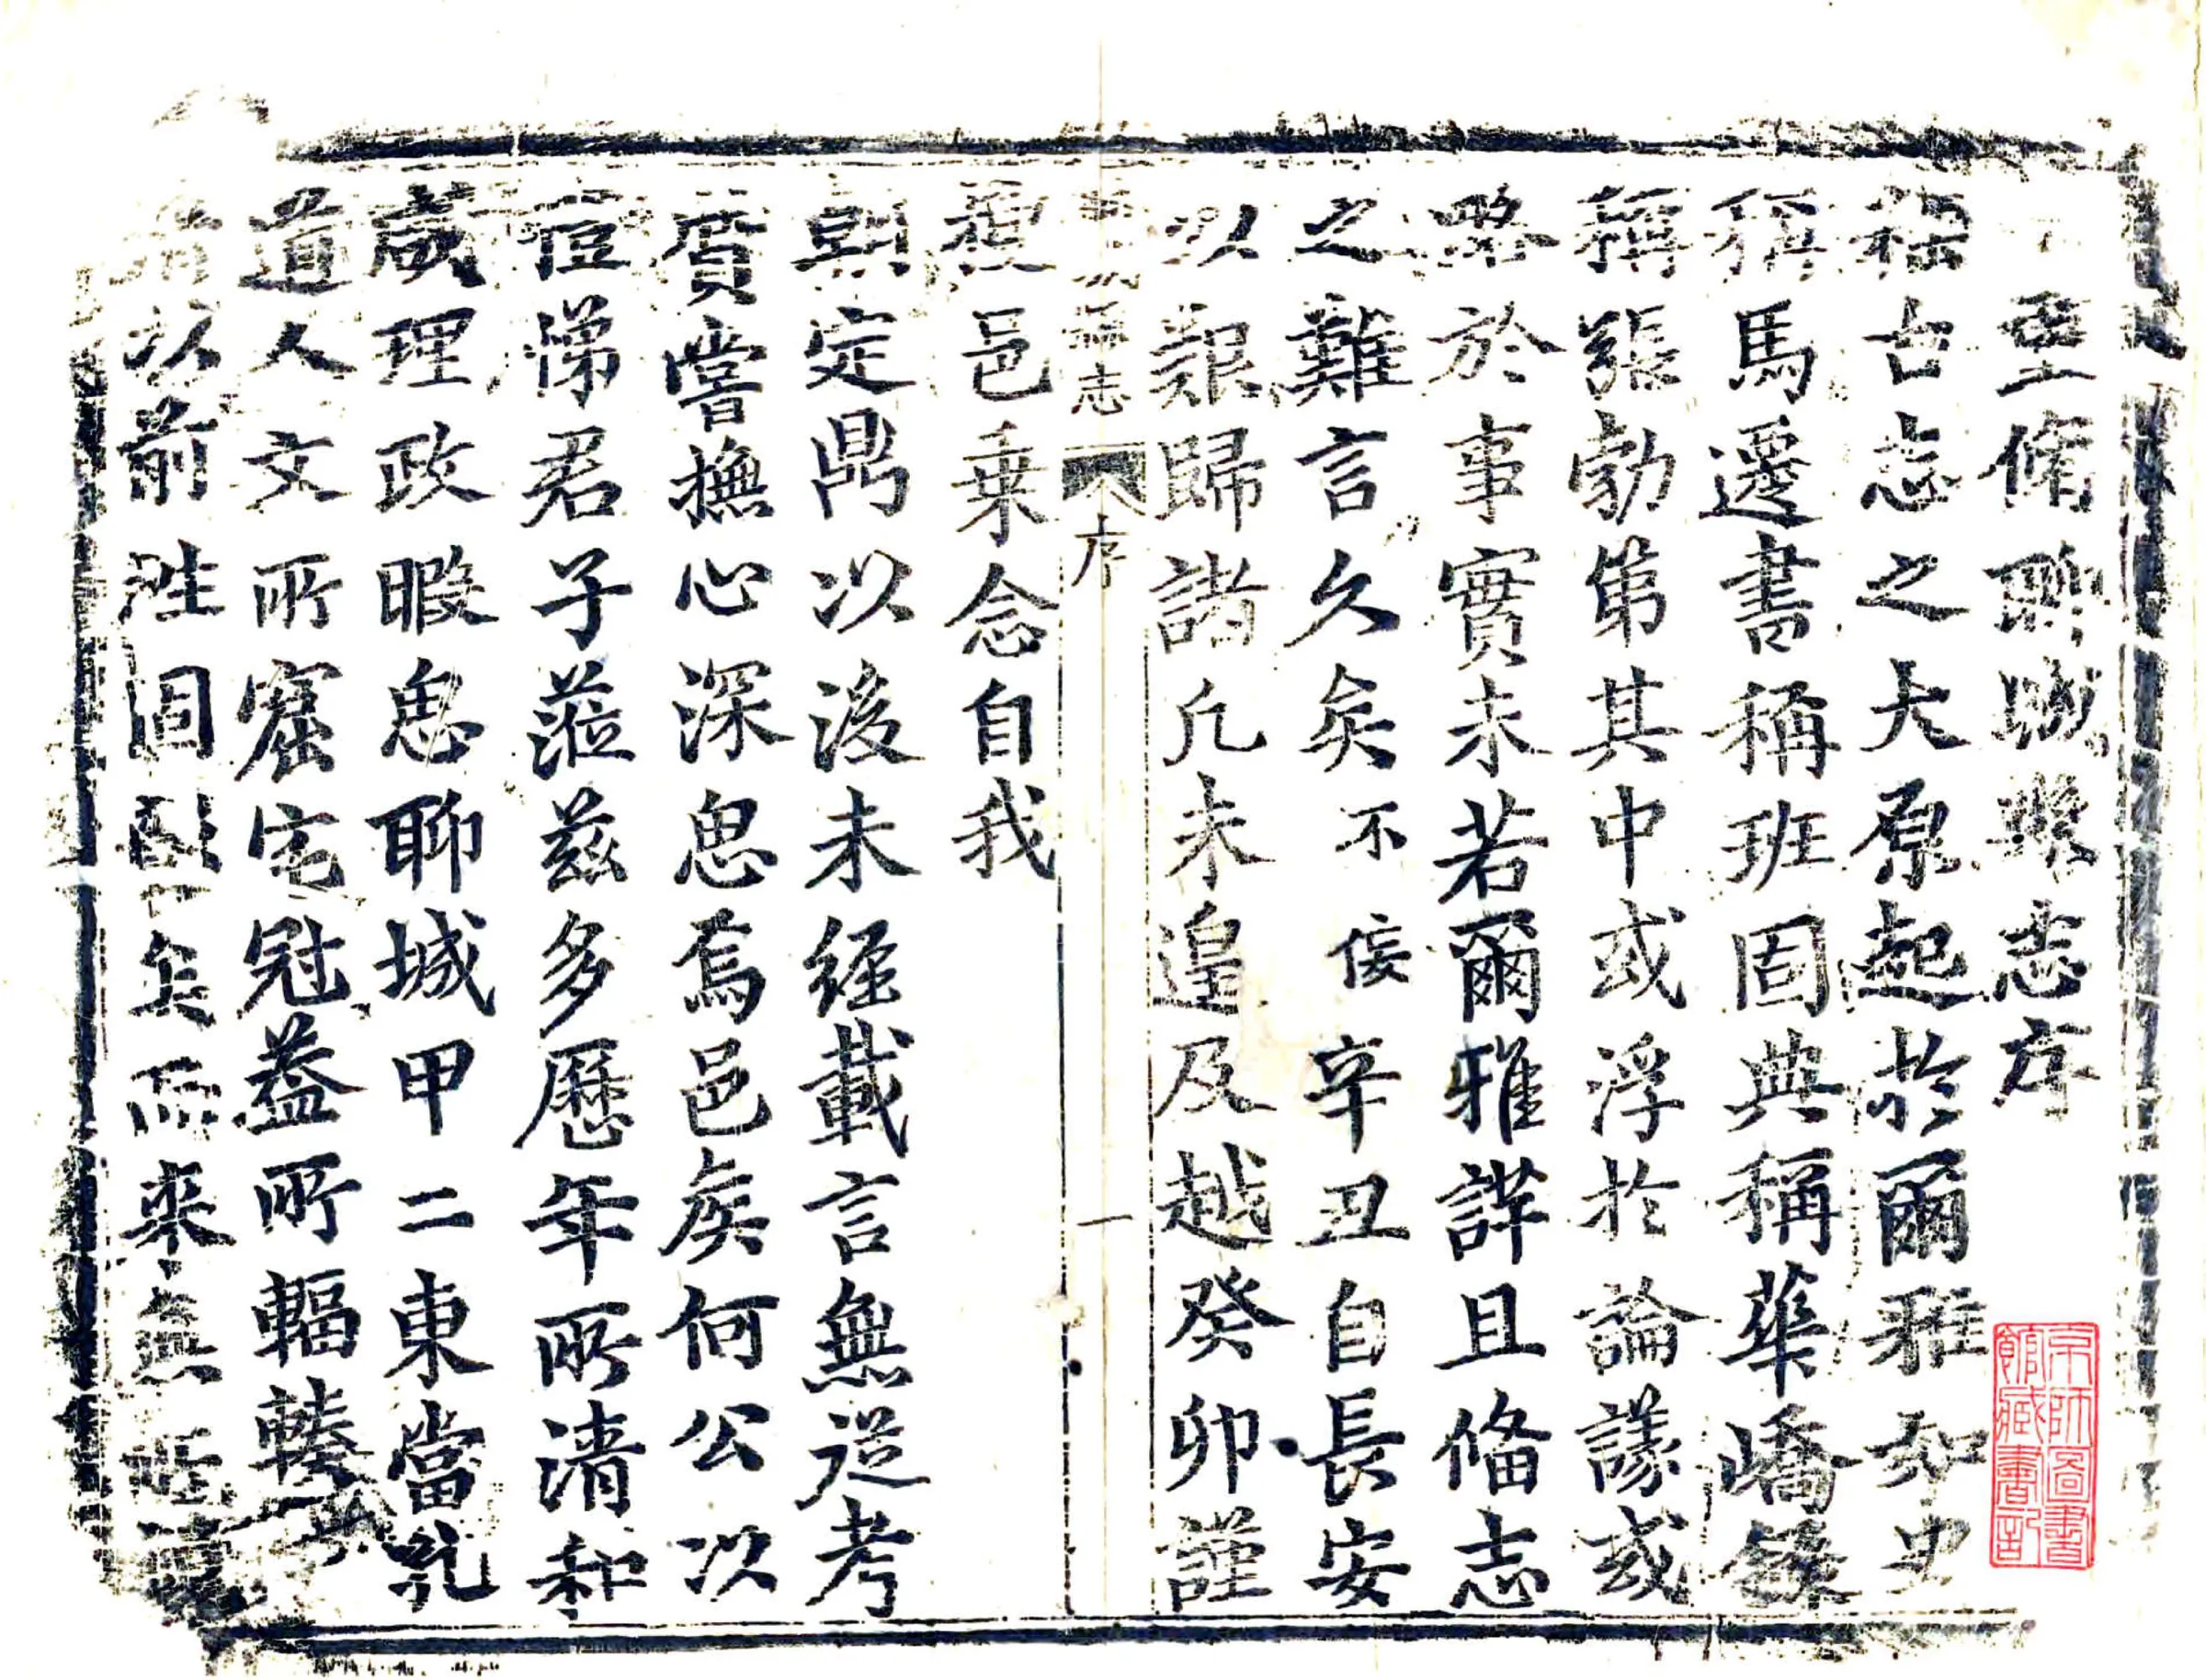 重脩聊城縣志序
稽古志之大原起於爾雅如史
稱馬遷書稱班固典稱華嶠錄
稱張勃第其中或浮於論議或
略於事實未若爾雅詳且俻志
之難言久矣不侫辛丑自長安
以艱歸諸凡未遑及越癸卯謹
聊城縣志 序 一
覆邑乗念自我
朝定鼎以後未經載言無從考
質嘗撫心深思焉邑矦何公以
豈悌君子蒞兹多歷年所清和
咸理政暇思聊城甲二東當乳
道人文所窟宅冠葢所輻輳
以前誌固矣而来無
京師圖書館藏書記